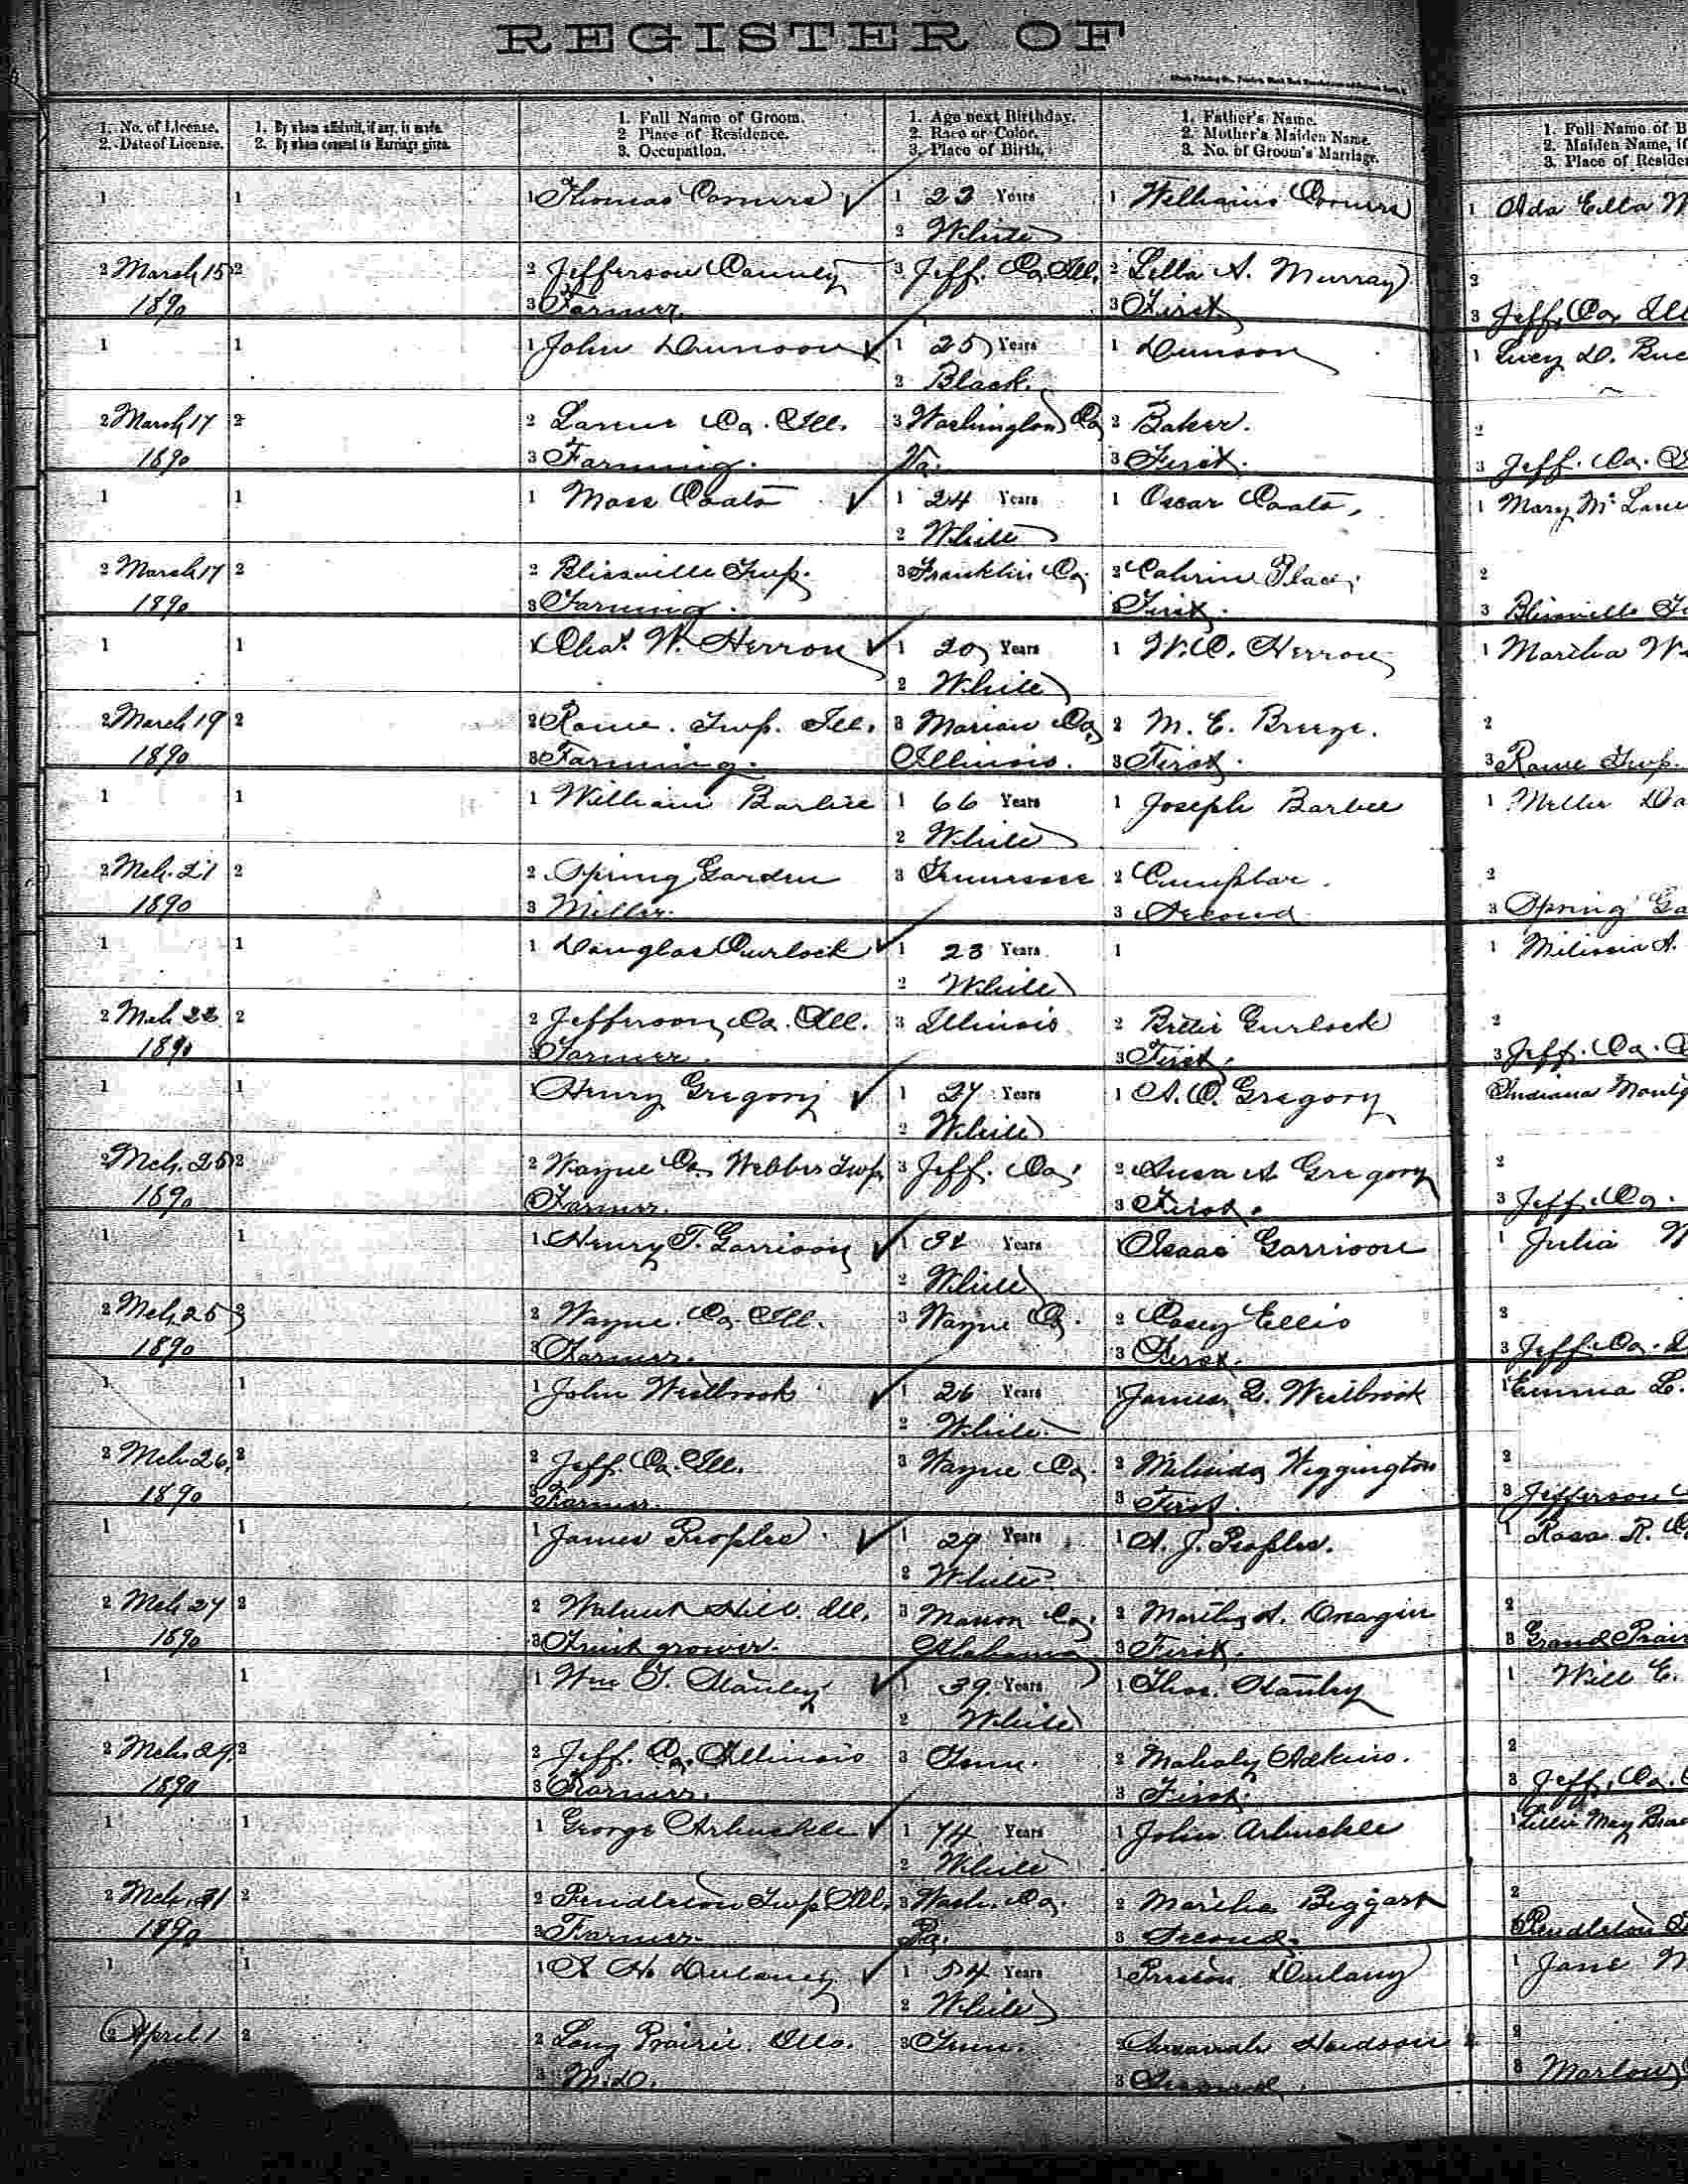 REGISTER OF
1. No. of License.
2. Date of License.
1. By whom affidavit, if any, is made.
2. By whom consent to Marriage given.
1. Full Name of Groom.
2 Place of Residence.
3. Occupation.
1. Age next Birthday.
2. Race or Color.
3. Place of Birth.
1. Father's Name.
2. Mother's Maiden Name.
3. No. of Groom's Marriage.
1. Full Name of B
2. Maiden Name, if
3. Place of Residen
1 1 1 Thomas 1 23 Years 1 1 Ada Etta
2 White
2 March 15 2 2 Jefferson County 3 Jeff. Co. Ill. 2 Lella A. Murray 2
1890 3 Farmer. 3 First 3 Jeff. Co. Ill
1 1 1 John Dunson 1 25 Years 1 Dunson 1 Lucy D. Buc
2 Black.
2 March 17 2 2 Co. Ill. 3 Washington Co 2 Baker. 2
1890 3 Farming. Va. 3 First. 3 Jeff. Co.
1 1 1 Coats 1 24 Years 1 Oscar Coats. 1 Mary Mc
2 White
2 March 17 2 2 Blissville Twp. 3 Franklin Co. 2 2
1890 3 Farming. First. 3 Blissville
1 1 Chas. W. Herron 1 20 Years 1 W. C. Herron 1 Martha W
2 White
2 March 19 2 2 Rome. Twp. Ill. 3 Marion Co. 2 M. E. Breeze. 2
1890 3 Farming. Illinois. 3 First. 3 Rome Twp.
1 1 1 William Barbee 1 66 Years 1 Joseph Barbee 1 Da
2 White
2 Mch. 21 2 2 Spring Garden 3 Tennessee 2 2
1890 3 Miller. 3 Second 3 Spring Ga
1 1 1 Douglas Curlock 1 23 Years 1 1 Milissia A.
2 White
2 Mch 22 2 2 Jefferson Co. Ill. 3 Illinois 2 Gurlock 2
1890 3 Farmer. 3 First. 3 Jeff. Co.
1 1 1 Henry Gregory 1 27 Years 1 A. C. Gregory Indiana Montg
2 White
2 Mch. 25 2 2 Wayne Co. Webber Twp. 3 Jeff. Co. 2 Susa A Gregory 2
1890 Farmer. 3 First. 3 Jeff. Co.
1 1 1 Henry T. Garrison 1 Years Isaac Garrison 1 Julia
2 White
2 Mch 25 2 2 Wayne. Co Ill. 3 Wayne Co. 2 Casey Ellis 2
1890 3 Farmer. 3 First. 3 Jeff. Co.
1 1 1 John Westbrook 1 26 Years 1 James Westbrook 1 Emma L.
2 White
2 Mch. 26, 2 2 Jeff. Co. Ill. 3 Wayne Co. 2 Melinda Wiggington 2
1890 3 Farmer. 3 First. 3 Jefferson
1 1 1 James Peoples 1 29 Years 1 A. J. Peoples. 1 Rosa R.
2 White
2 Mch 27 2 2 Walnut Hill. Ill. 3 Marion Co. 2 Martha A. 2
1890 3 Fruit grower. Alabama 3 First. 3 Grand Prair
1 1 1 Wm T. Stanley 1 39 Years 1 Thos. Stanley 1 Will E.
2 White
2 Mch. 29, 2 2 Jeff. Co. Illinois 3 Tenn. 2 Mahaly Adkins. 2
1890 3 Farmer. 3 First. 3 Jeff. Co.
1 1 1 George Arbuckle 1 74 Years 1 John Arbuckle 1 Lillie May
2 White
2 Mch. 31 2 2 Pendleton Twp Ill. 3 Wash. Co. 2 Martha Biggart 2
1890 3 Farmer Pa. 3 Second. Pendleton
1 1 1 Dulaney 1 54 Years 1 Dulany 1 Jane
2 White
2 April 1 2 2 Long Prairie. Ills. 3 Tenn. 2 Hudson 2
3 M.D. 3 Second. 3 Marlow